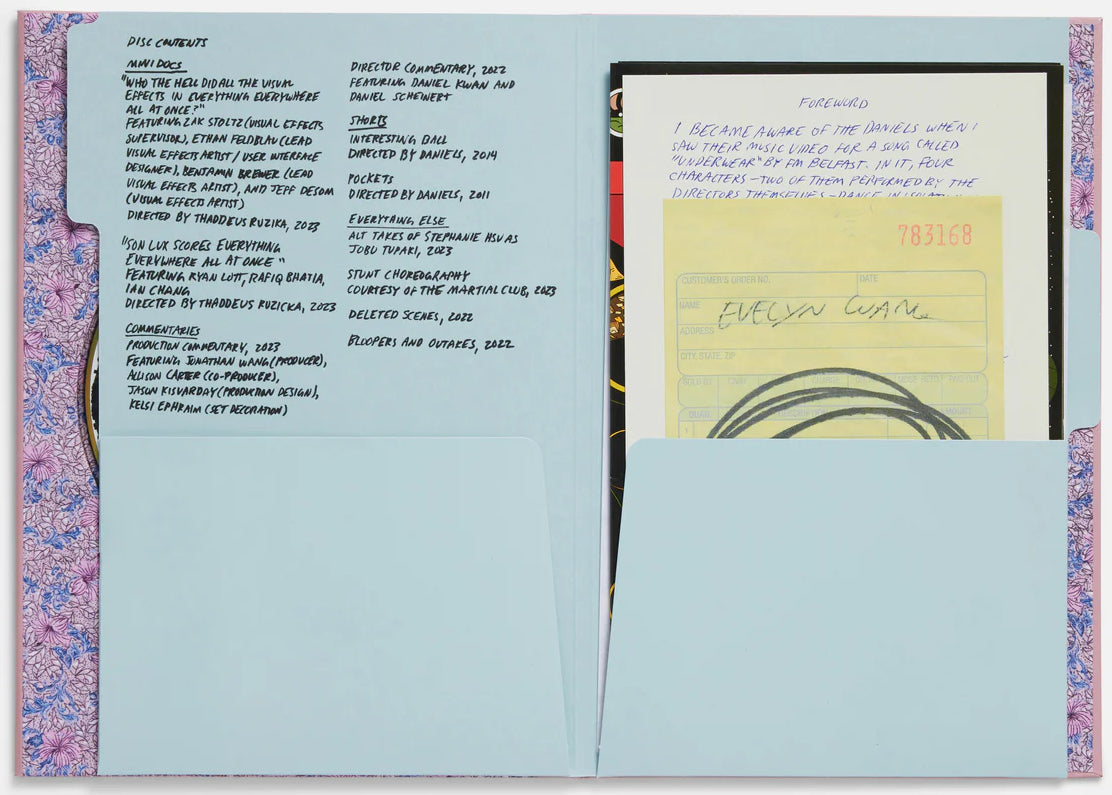 DISC CONTENTS
MINI DOCS
"WHO THE HELL DID ALL THE VISUAL
EFFECTS IN EVERYTHING EVERYWHERE
ALL AT ONCE?"
FEATURING ZAK STOLTZ (VISUAL EFFECTS
SUPERVISOR), ETHAN FELDBAU (LEAD
VISUAL EFFECTS ARTIST / USER INTERFACE
DESIGNER), BENJAMIN BREWER (LEAD
VISUAL EFFECTS ARTIST), AND JEFF DESOM
(VISUAL EFFECTS ARTIST)
DIRECTED BY THADDEUS RUZIKA, 2023
"SON LUX SCORES EVERYTHING
EVERYWHERE ALL AT ONCE"
FEATURING RYAN LOTT, RAFIQ BHATIA,
IAN CHANG
DIRECTED BY THADDEUS RUZICKA, 2023
COMMENTARIES
PRODUCTION COMMENTARY, 2023
FEATURING JONATHAN WANG (PRODUCER),
ALLISON CARTER (CO-PRODUCER),
JASON KISVARDAY (PRODUCTION DESIGN),
KELSI EPHRAIM (SET DECORATION)
DIRECTOR COMMENTARY, 2022
FEATURING DANIEL KWAN AND
DANIEL SCHEINERT
SHORTS
INTERESTING BALL
DIRECTED BY DANIELS, 2014
POCKETS
DIRECTED BY DANIELS, 2011
EVERYTHING ELSE
ALT TAKES OF STEPHANIE HSU AS
JOBU TUPAKI, 2023
STUNT CHOREOGRAPHY
COURTESY OF THE MARTIAL CLUB, 2023
DELETED SCENES, 2022
BLOOPERS AND OUTAKES, 2022
FOREWORD
I BECAME AWARE OF THE DANIELS WHEN I
SAW THEIR MUSIC VIDEO FOR A SONG CALLED
"UNDERWEAR" BY FM BELFAST. IN IT, FOUR
CHARACTERS – TWO OF THEM PERFORMED BY THE
DIRECTORS THEMSELVES – DANCE IN
783168
CUSTOMER'S ORDER NO. DATE
NAME EVELYN WANG
ADDRESS
CITY, STATE, ZIP
SOLD BY CHARGE MDSE RETD
QUAN.
1